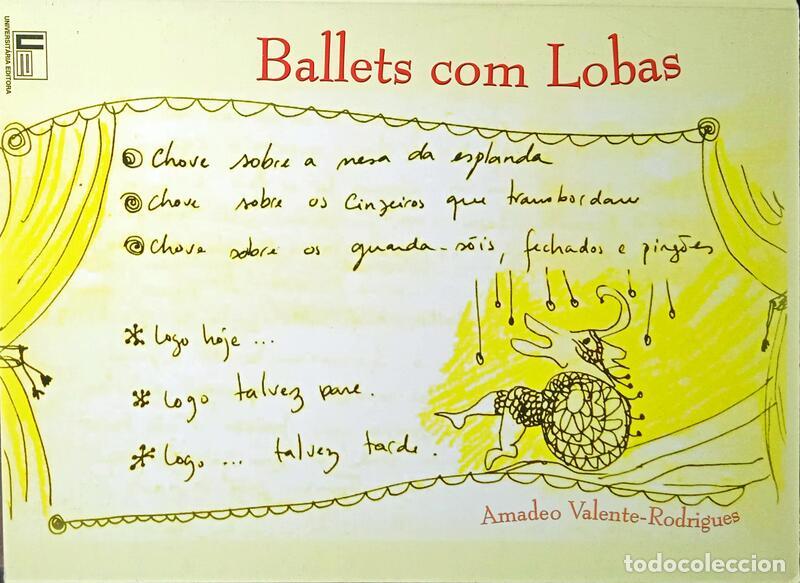 UNIVERSITÁRIA EDITORA
Ballets com Lobas
Chove sobre a mesa da esplanda
Chove sobre os Cinzeiros que transbordam
Chove sobre os guarda-sóis, fechados e pingões
Logo hoje ...
Logo talvez pare.
Logo ... talvez tarde.
Amadeo Valente-Rodrigues
todocoleccion